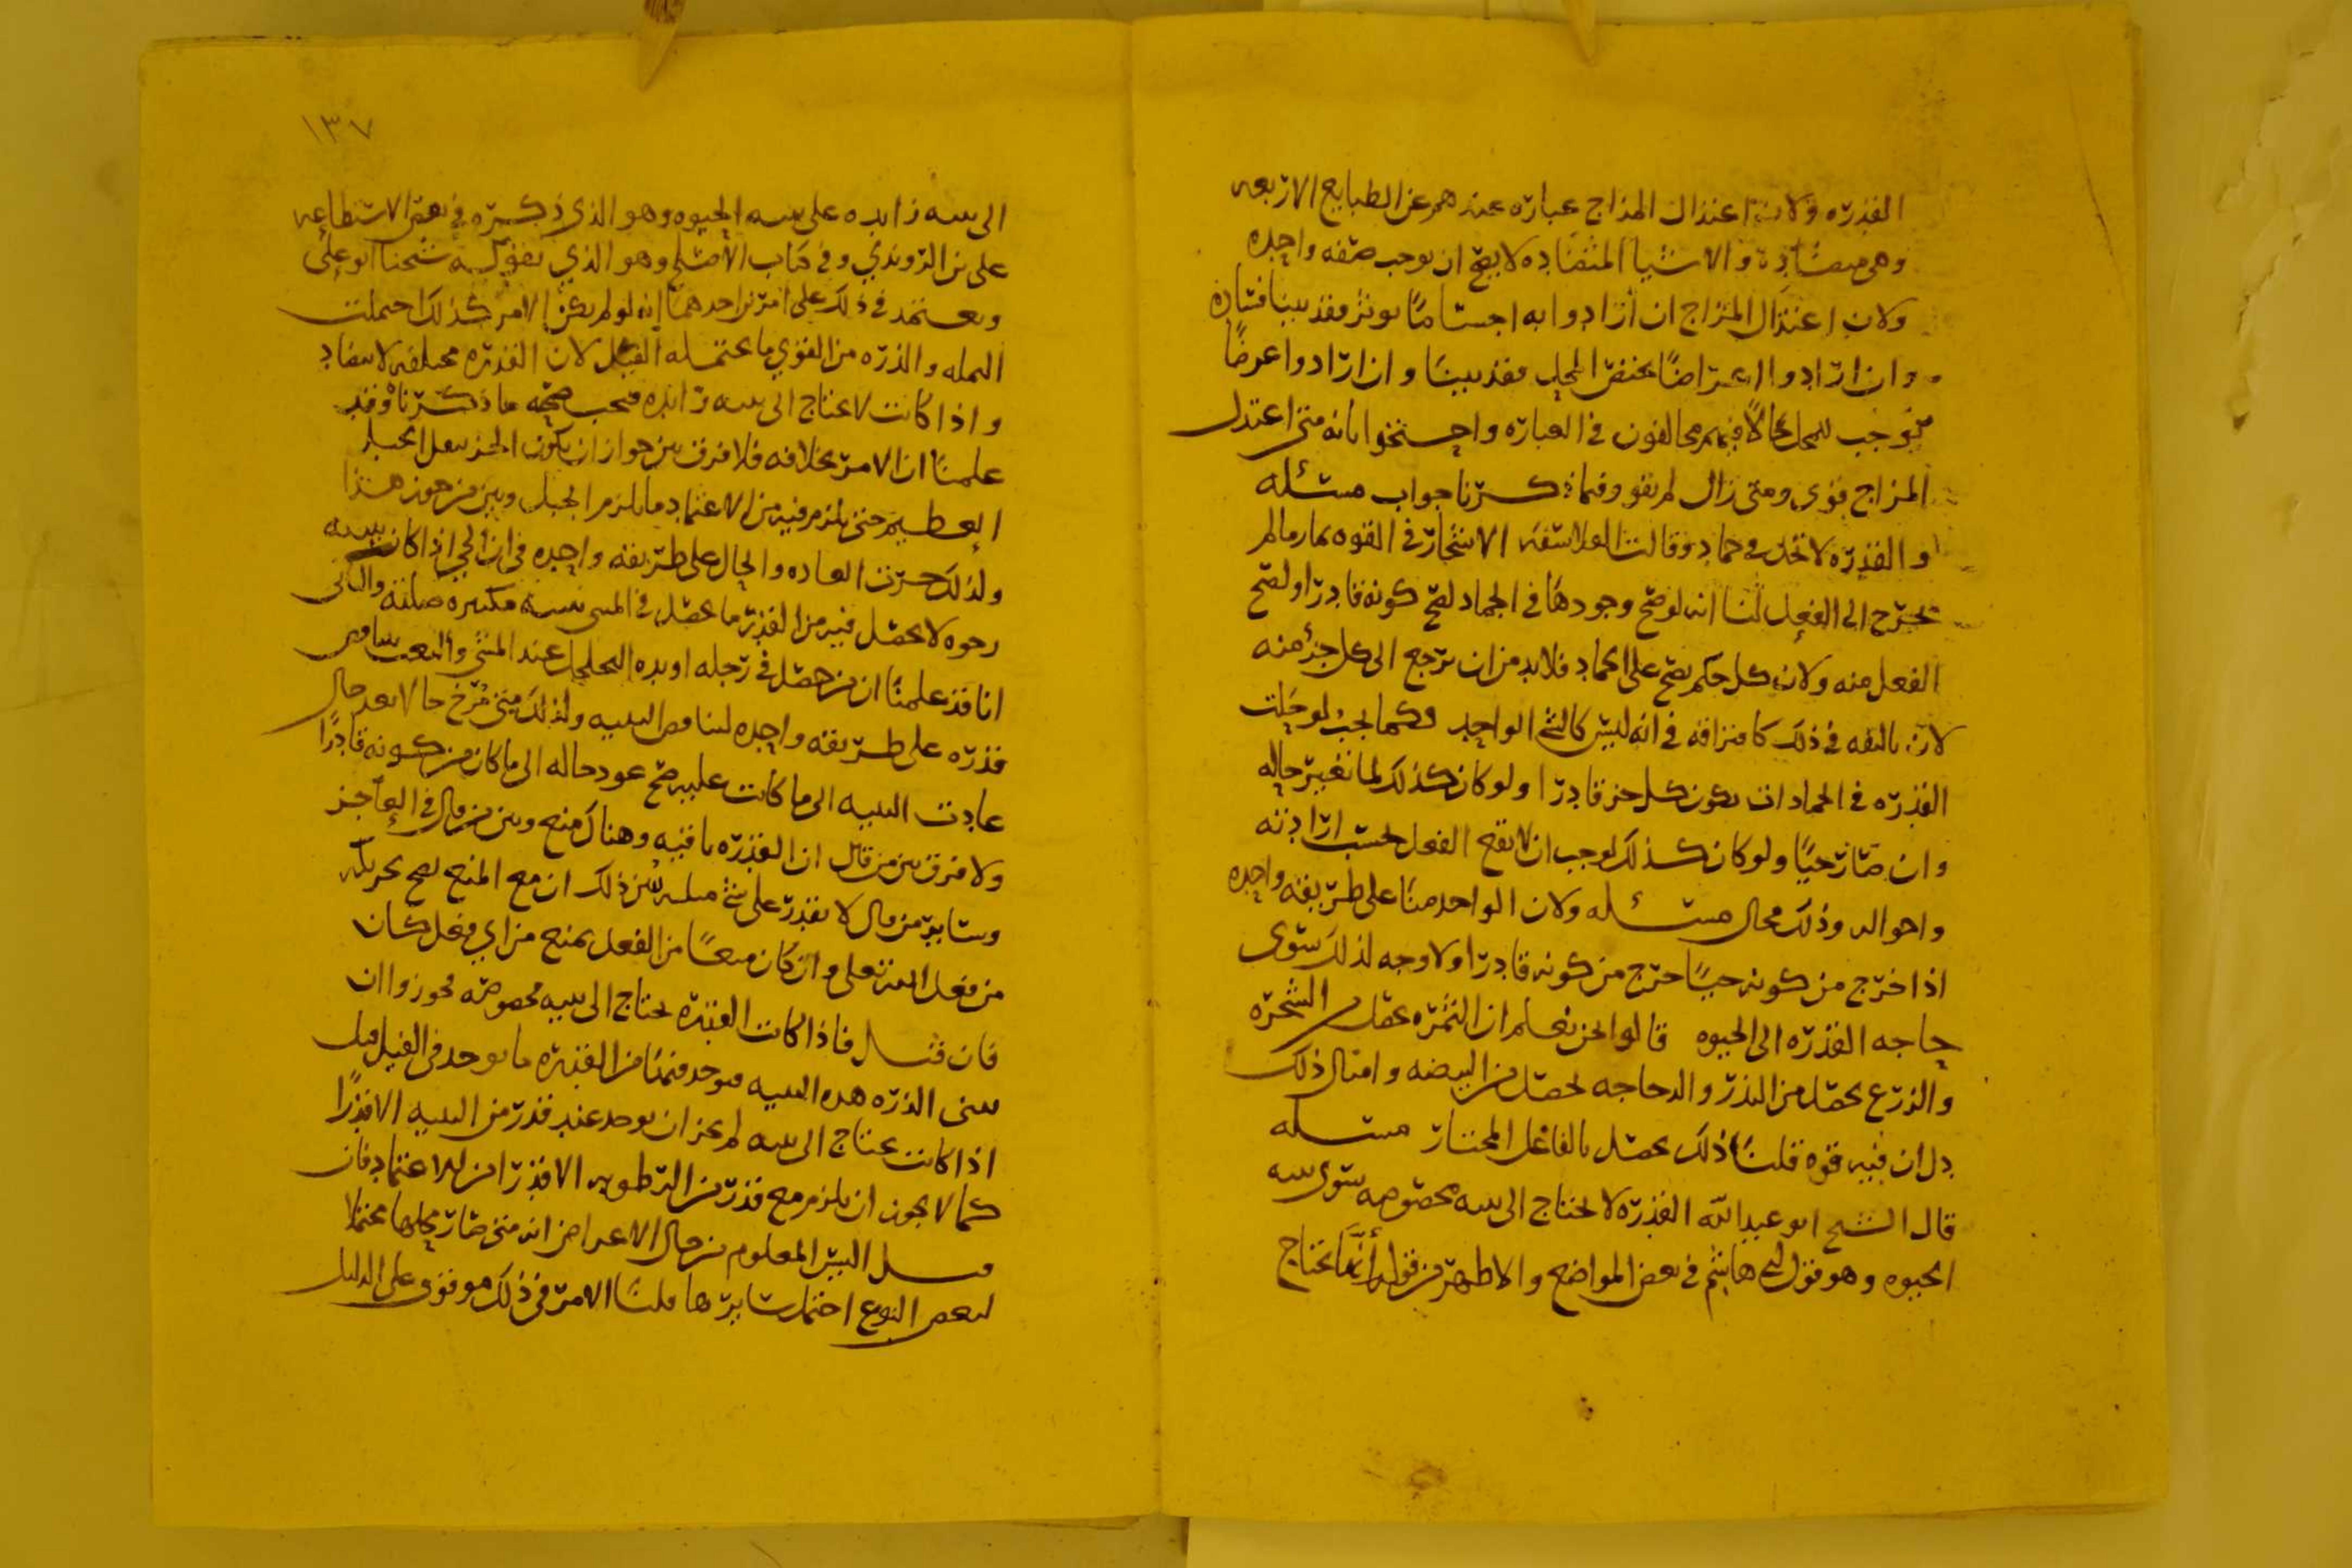 القدره ولان اعتدال المزاج عباره عندهم عن الطبايع الاربعه
وهي متضادة والاشيا المتضاده لا يصح ان توجب صفه واحده
ولان اعتدال المزاج ان ارادوا به اجساما توثر فقد بينا فساده
وان ارادوا اعراضًا تختص المحل فقد بينا وان ارادوا عرضًا
يوجب للمحل حالًا فهم مخالفون في العباره واحتجوا بانه متى اعتدل
المزاج قوى ومتى زال لم يقو وفيما ذكرنا جواب مسئله
والقدره لا تحل في جماد وقالت الفلاسفه الاشجار في القوه مالم
تخرج الى الفعل لنا انه لو صح وجودها في الجماد لصح كونه قادرًا ولصح
الفعل منه ولان كل حكم يصح على الجماد فلابد من ان يرجع الى كل جزء منه
لان تالفه في ذلك كافتراقه في انه ليس كالشي الواحد فكما يجب لو حلت
القدره في الجمادات يكون كل جز قادرًا ولو كان كذلك لما تغير حاله
وان صار حيًا ولو كان كذلك لوجب ان لا يقع الفعل بحسب ارادته
واحواله وذلك محال مسئله ولان الواحد منا على طريقه واحده
اذا خرج من كونه حيًا خرج من كونه قادرًا ولا وجه لذلك سوى
حاجه القدره الى الحيوه قالوا نحن نعلم ان الثمره تحصل من الشجره
والزرع يحصل من البذر والدجاجه تحصل من البيضه وامثال ذلك
دل ان فيه قوه قلنا ذلك يحصل بالفاعل المختار مسئله
قال الشيخ ابو عبد الله القدره لا تحتاج الى بنيه مخصوصه سوى بنيه
الحيوه وهو قول ابي هاشم في بعض المواضع والاظهر من قوله أنها تحتاج
١٣٧
الى بنيه زايده على بنيه الحيوه وهو الذي ذكره في نقض الاستطاعه
على بن الروندي وفي كتاب الاصلح وهو الذي يقول به شيخنا ابو علي
ويعتمد في ذلك على امرين احدهما انه لو لم يكن الامر كذلك احتملت
النمله والذره من القوي ما يحتمله الفيل لان القدره مختلفه لا تتضاد
واذا كانت لا تحتاج الى بنيه زايده فيجب صحه ما ذكرناه وقد
علمنا ان الامر بخلافه فلا فرق بين جواز ان يكون الجز بثقل الجبل
العظيم حتى يلزم فيه من الاعتماد ما يلزم الجبل وبين من جوز هذا
ولذلك جرت العاده والحال على طريقه واحده في ان الحي اذا كانت بنيته
رخوه لا يحصل فيه من القدر ما يحصل في المبني بنية مكتنزه صلبه والثاني
انا قد علمنا ان من حصل في رجله او يده التخلخل عند المشي والتعب تناقص
قدره على طريقه واحده لتناقص البنيه ولذلك متى مُرّخ حالا بعد حال
عادت البنيه الى ما كانت عليه صح عود حاله الى ما كان من كونه قادرًا
ولا فرق بين من قال ان القدره باقيه وهناك منع وبين من قال في العاجز
وساير من قال لا يقدر على شي مثله يبين ذلك ان مع المنع يصح تحريكه
من فعل الله تعلى وان كان منعًا من الفعل يمنع من اي فعل كان
فان قيل فاذا كانت القدره تحتاج الى بنيه مخصوصه فجوزوا ان
تبنى الذره هذه البنيه فيوجد فيها من القدره ما يوجد في الفيل قيل
اذا كانت تحتاج الى بنيه لم يجز ان يوجد عند قدر من البنيه الا قدرًا
كما لا يجوز ان يلزم مع قدر من الرطوبه الا قدرًا من الاعتماد فان
قيل اليس المعلوم من حال الاعراض انه متى صار محلها محتملا
لبعض النوع احتمل سايرها قلنا الامر في ذلك موقوف على الدليل